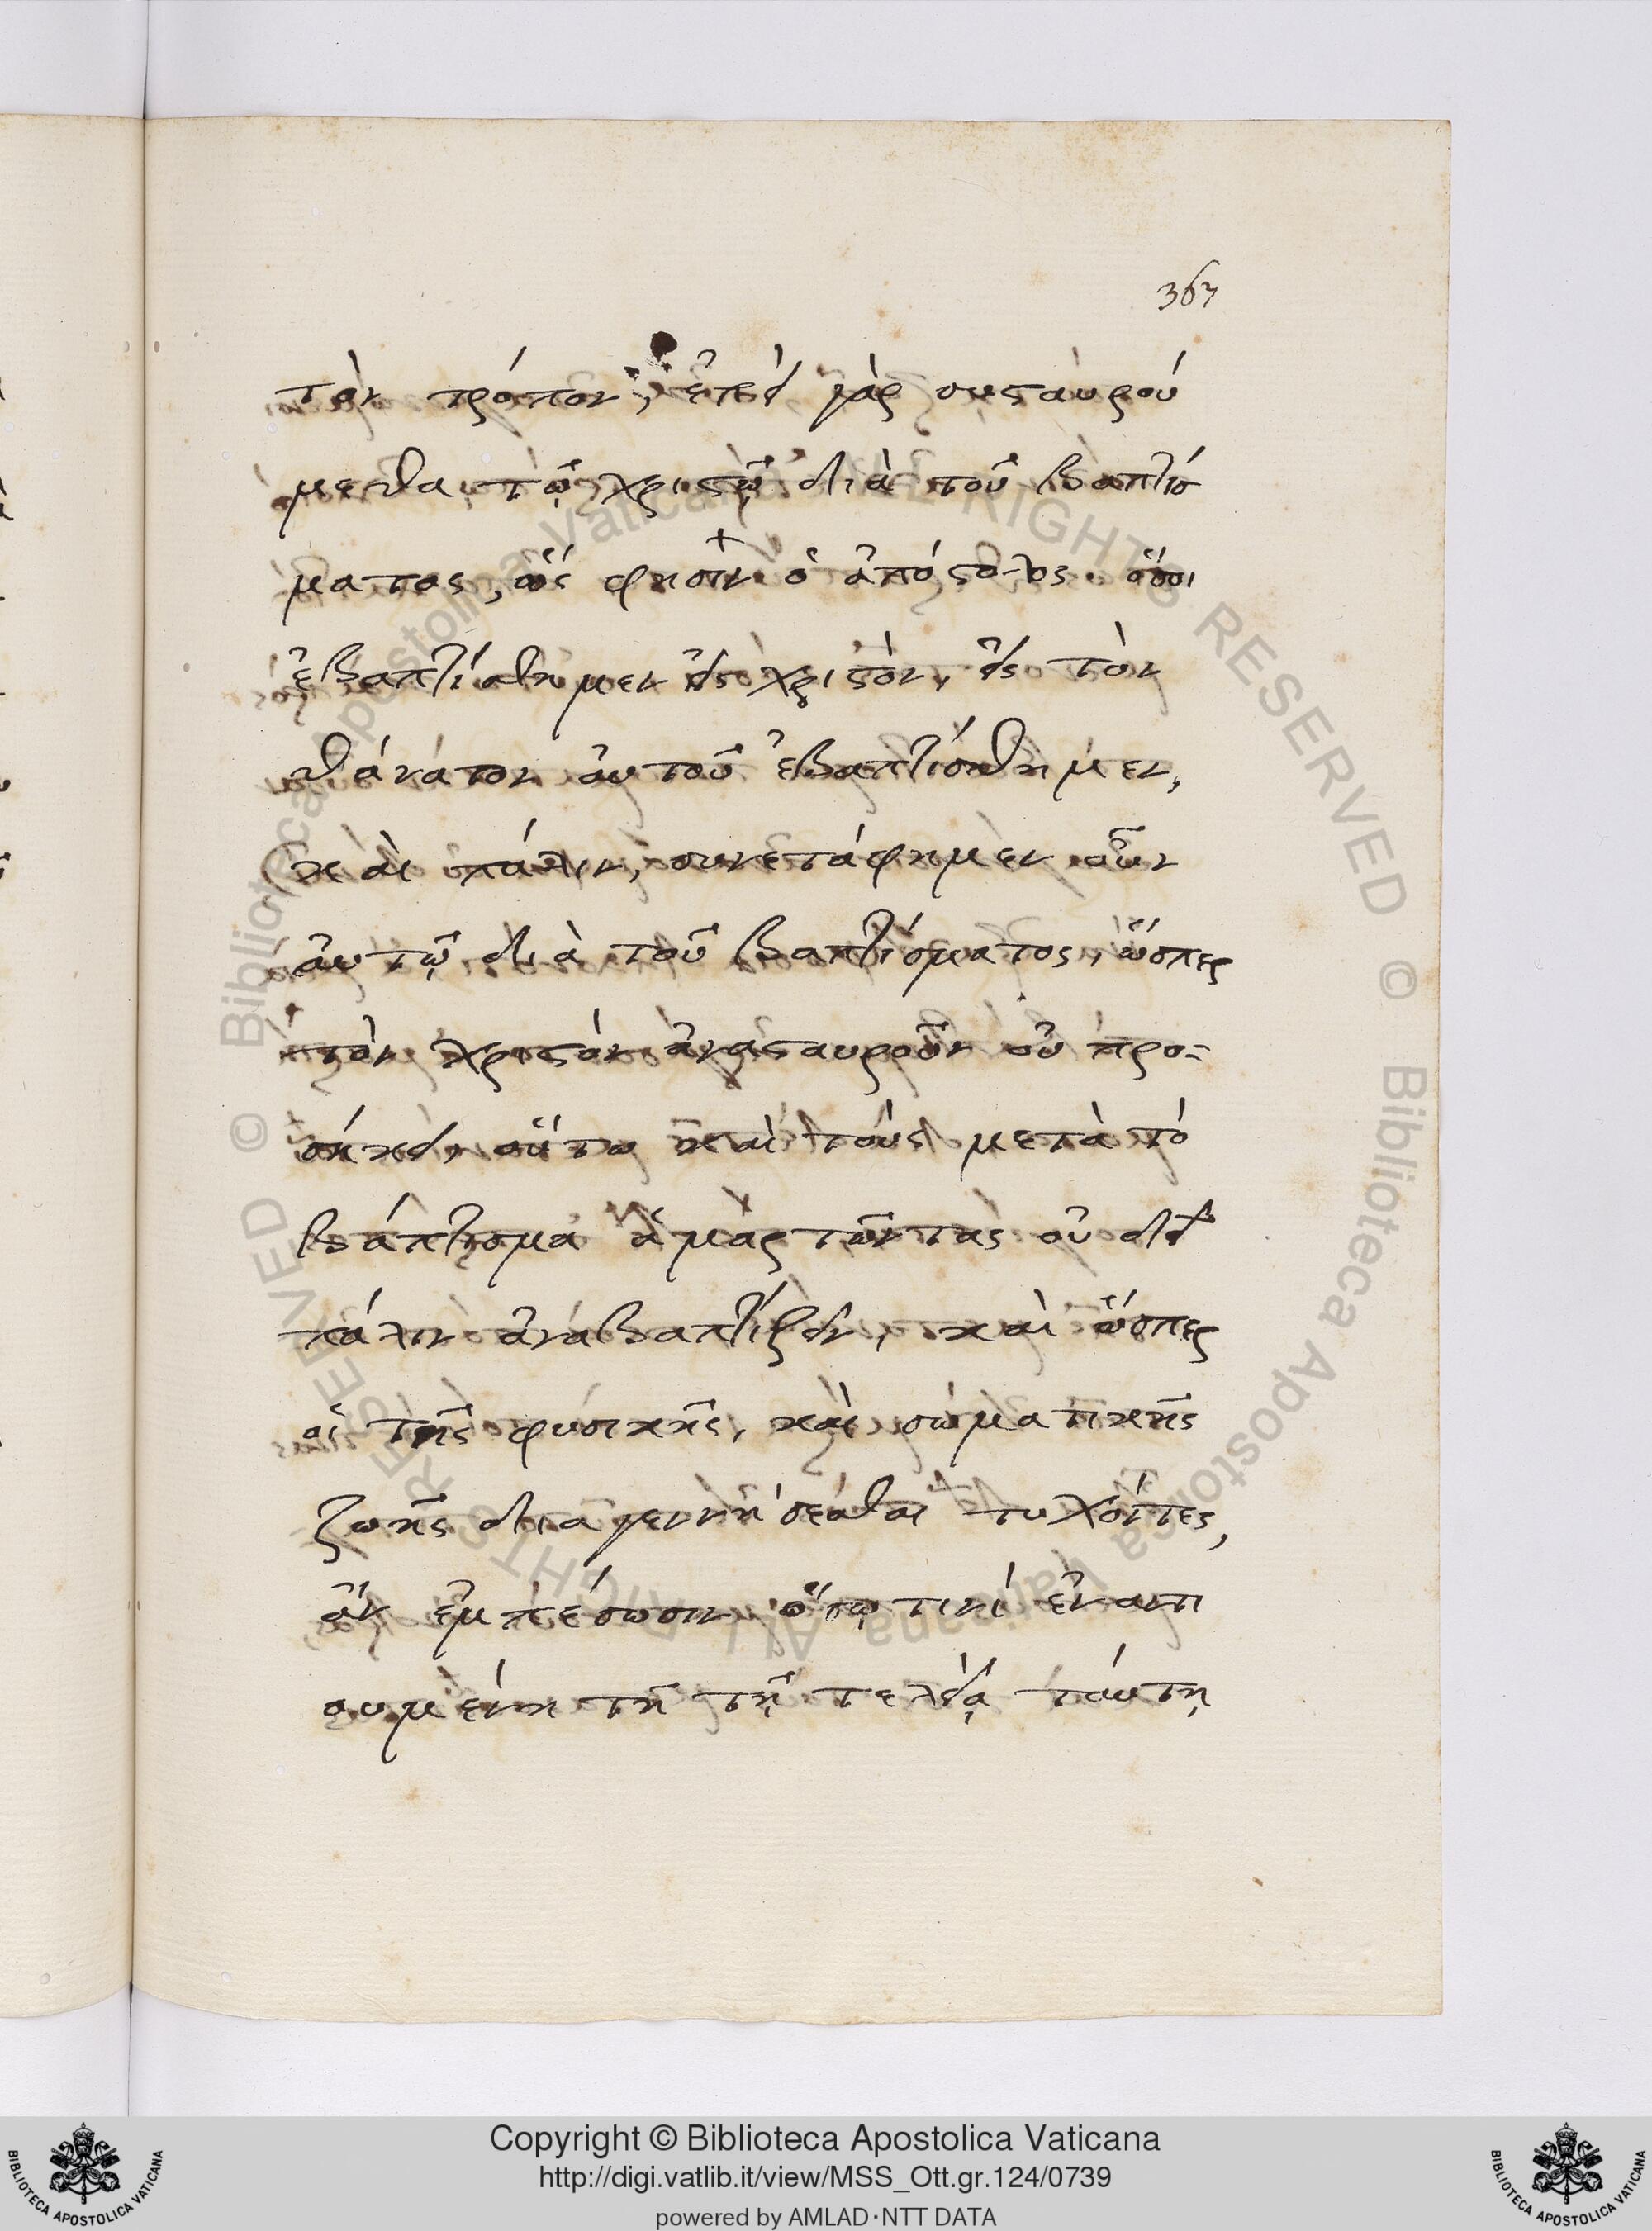 367
τὸν τρόπον, ἐπεὶ γὰρ συσταυρού
μεθα τῷ χριστῷ διὰ τοῦ βαπτίσ
ματος, ὥς φησὶν ὁ ἀπόστολος. ὅσοι
ἐβαπτίσθημεν εἰς χριστὸν, εἰς τὸν
θάνατον αὐτοῦ ἐβαπτίσθημεν,
καὶ πάλιν, συνετάφημεν οὖν
αὐτῷ διὰ τοῦ βαπτίσματος, ὥσπερ
τὸν χριστὸν ἀνασταυροῦν οὐ προ-
σήκει, οὕτω καὶ τοὺς μετὰ τὸ
βάπτισμα ἁμαρτῶντας οὐ δεῖ
πάλιν ἀναβαπτίζειν, καὶ ὥσπερ
οἱ τῆς φυσικῆς, καὶ σωματικῆς
ζωῆς διαγεννήσεσθαι τυχόντες,
ἂν ἐμπέσωσιν ὅσῳ τινὶ ἐναντι
ουμένῃ τῇ τελείᾳ ταύτῃ
Copyright © Biblioteca Apostolica Vaticana
http://digi.vatlib.it/view/MSS_Ott.gr.124/0739
powered by AMLAD·NTT DATA
BIBLIOTECA APOSTOLICA VATICANA
BIBLIOTECA APOSTOLICA VATICANA
© Biblioteca Apostolica Vaticana ALL RIGHTS RESERVED © Biblioteca Apostolica Vaticana ALL RIGHTS RESERVED